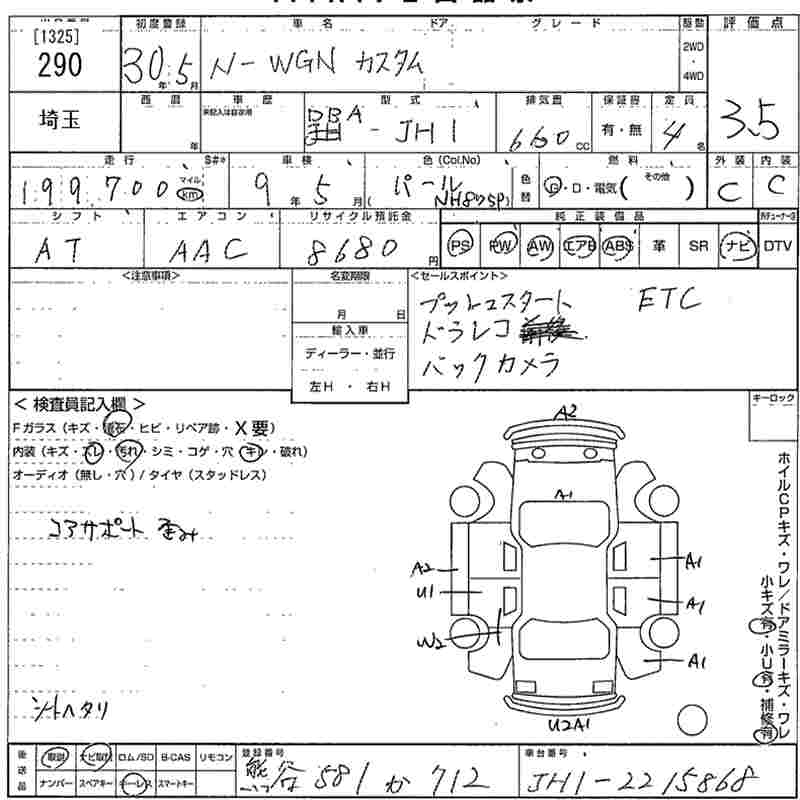 [1325]
290
初度登録
車名
ドア
グレード
駆動
評価点
30年 5月
N-WGN カスタム
2WD
・
4WD
3.5
埼玉
西暦
年
車歴
未記入は自家用
型式
DBA - JH1
排気量
660 CC
保証書
有・無
定員
4名
走行
S#*
199,700
マイル
km
車検
9年 5月
色(Col,No)
パール
NH875P
色替
燃料
G・D・電気( その他 )
外装
C
内装
C
シフト
AT
エアコン
AAC
リサイクル預託金
8680円
純正装備品
PS PW AW エアB ABS 革 SR ナビ DTV
<注意事項>
名変期限
月 日
輸入車
ディーラー・並行
左H ・ 右H
<セールスポイント>
プットユスタート ETC
ドラレコ
バックカメラ
キーロック
< 検査員記入欄 >
Fガラス (キズ・飛石・ヒビ・リペア跡・X要)
内装 (キズ・スレ・汚れ・シミ・コゲ・穴・キレ・破れ)
オーディオ (無し・穴) / タイヤ (スタッドレス)
コアサポート 歪み
シートヘタリ
A2
A1
A2
U1
W2
A1
A1
A1
U2A1
ホイルCPキズ・ワレ/ドアミラーキズ・ワレ
小キズ有・小U有・補修有
後送品
取説 ナビ取説 ロム/SD B-CAS リモコン
ナンバー スペアキー キーレス スマートキー
登録番号
熊谷 581 か 712
車台番号
JH1-2215868